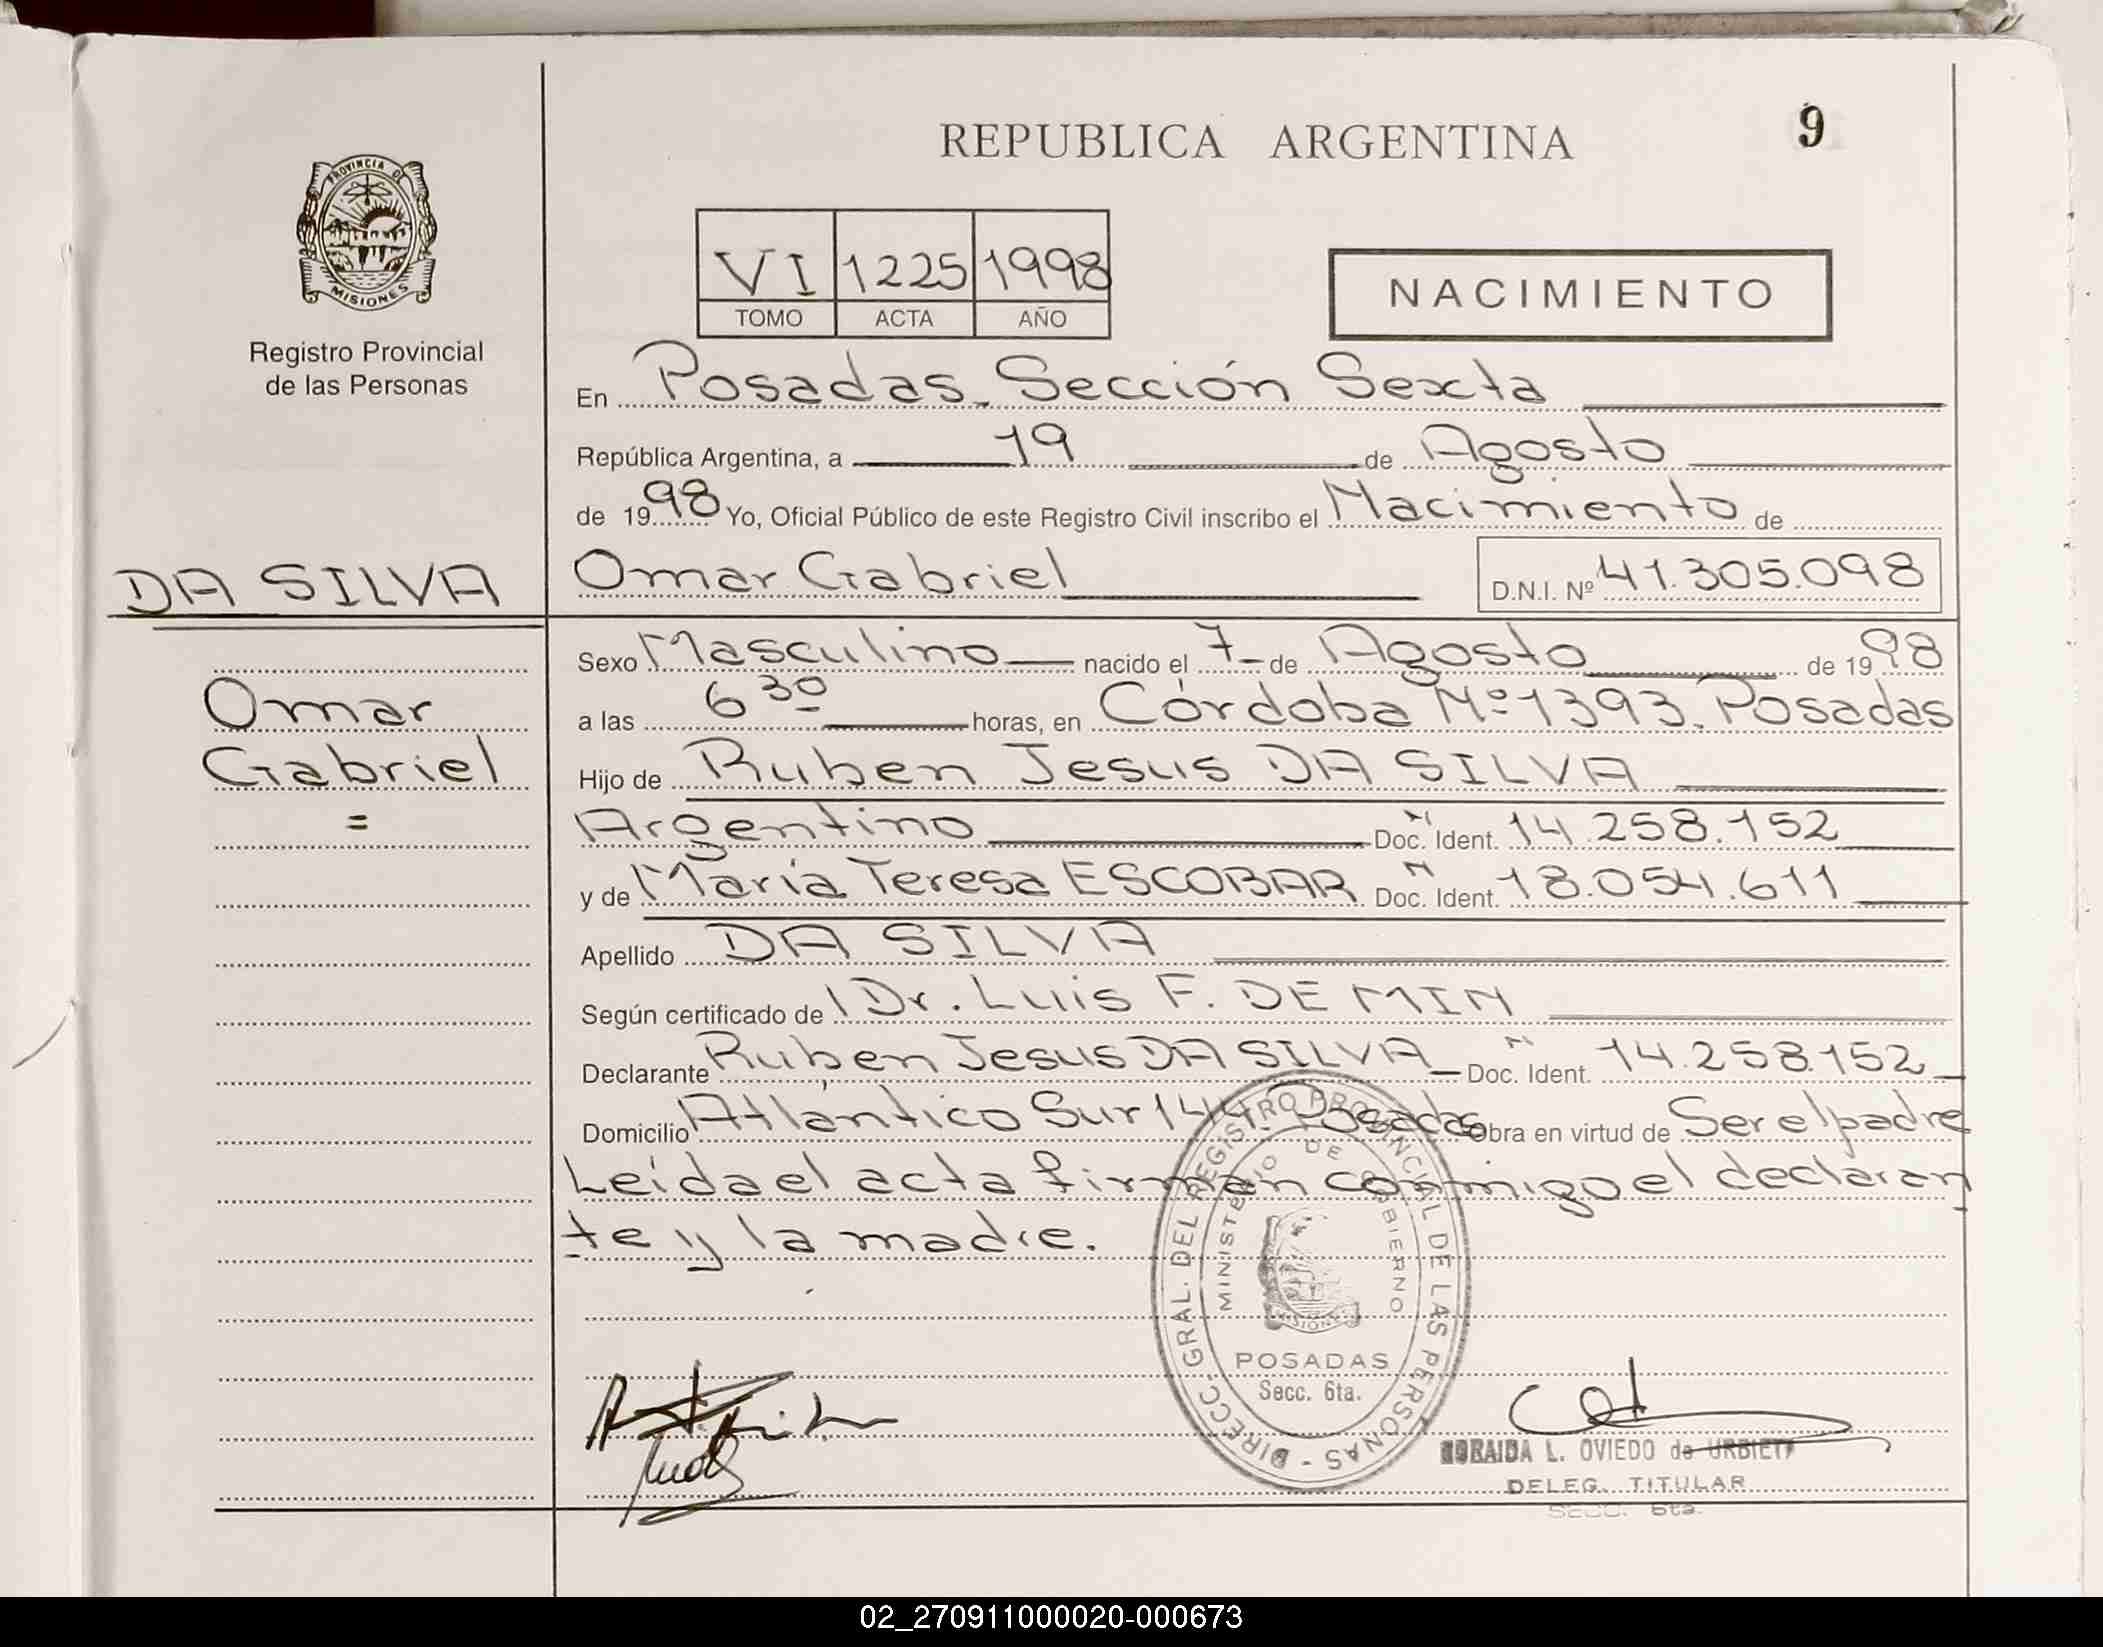 REPUBLICA ARGENTINA
9
PROVINCIA DE
MISIONES
Registro Provincial
de las Personas
VI 1225 1998
TOMO ACTA AÑO
NACIMIENTO
En Posadas. Sección Sexta
República Argentina, a 19 de Agosto
de 1998 Yo, Oficial Público de este Registro Civil inscribo el Nacimiento de
DA SILVA
Omar Gabriel D.N.I. Nº 41.305.098
Sexo Masculino nacido el 7 de Agosto de 1998
Omar
Gabriel
=
a las 6 30 horas, en Córdoba Nº 1393. Posadas
Hijo de Ruben Jesus DA SILVA
Argentino Doc. Ident. N 14.258.152
y de María Teresa ESCOBAR Doc. Ident. N 18.054.611
Apellido DA SILVA
Según certificado de Dr. Luis F. DE MIN
Declarante Ruben Jesus DA SILVA Doc. Ident. N 14.258.152
Domicilio Atlántico Sur 144. Posadas Obra en virtud de Ser el padre
Leída el acta firman conmigo el declaran
te y la madre.
DIRECC. GRAL. DEL REGISTRO PROVINCIAL DE LAS PERSONAS -
MINISTERIO DE GOBIERNO
MISIONES
POSADAS
Secc. 6ta.
L. OVIEDO de URBIETA
DELEG. TITULAR
SECC. 6ta.
02_270911000020-000673